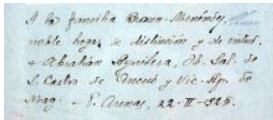 A la familia Braun-Menéndez,
noble hogar de distinción y de virtud.
+ Abrahám Aguilera, Ob. Sal. de
S. Carlos de Ancud y Vic. Ap. de
Mag. - P. Arenas, 22-II-925.